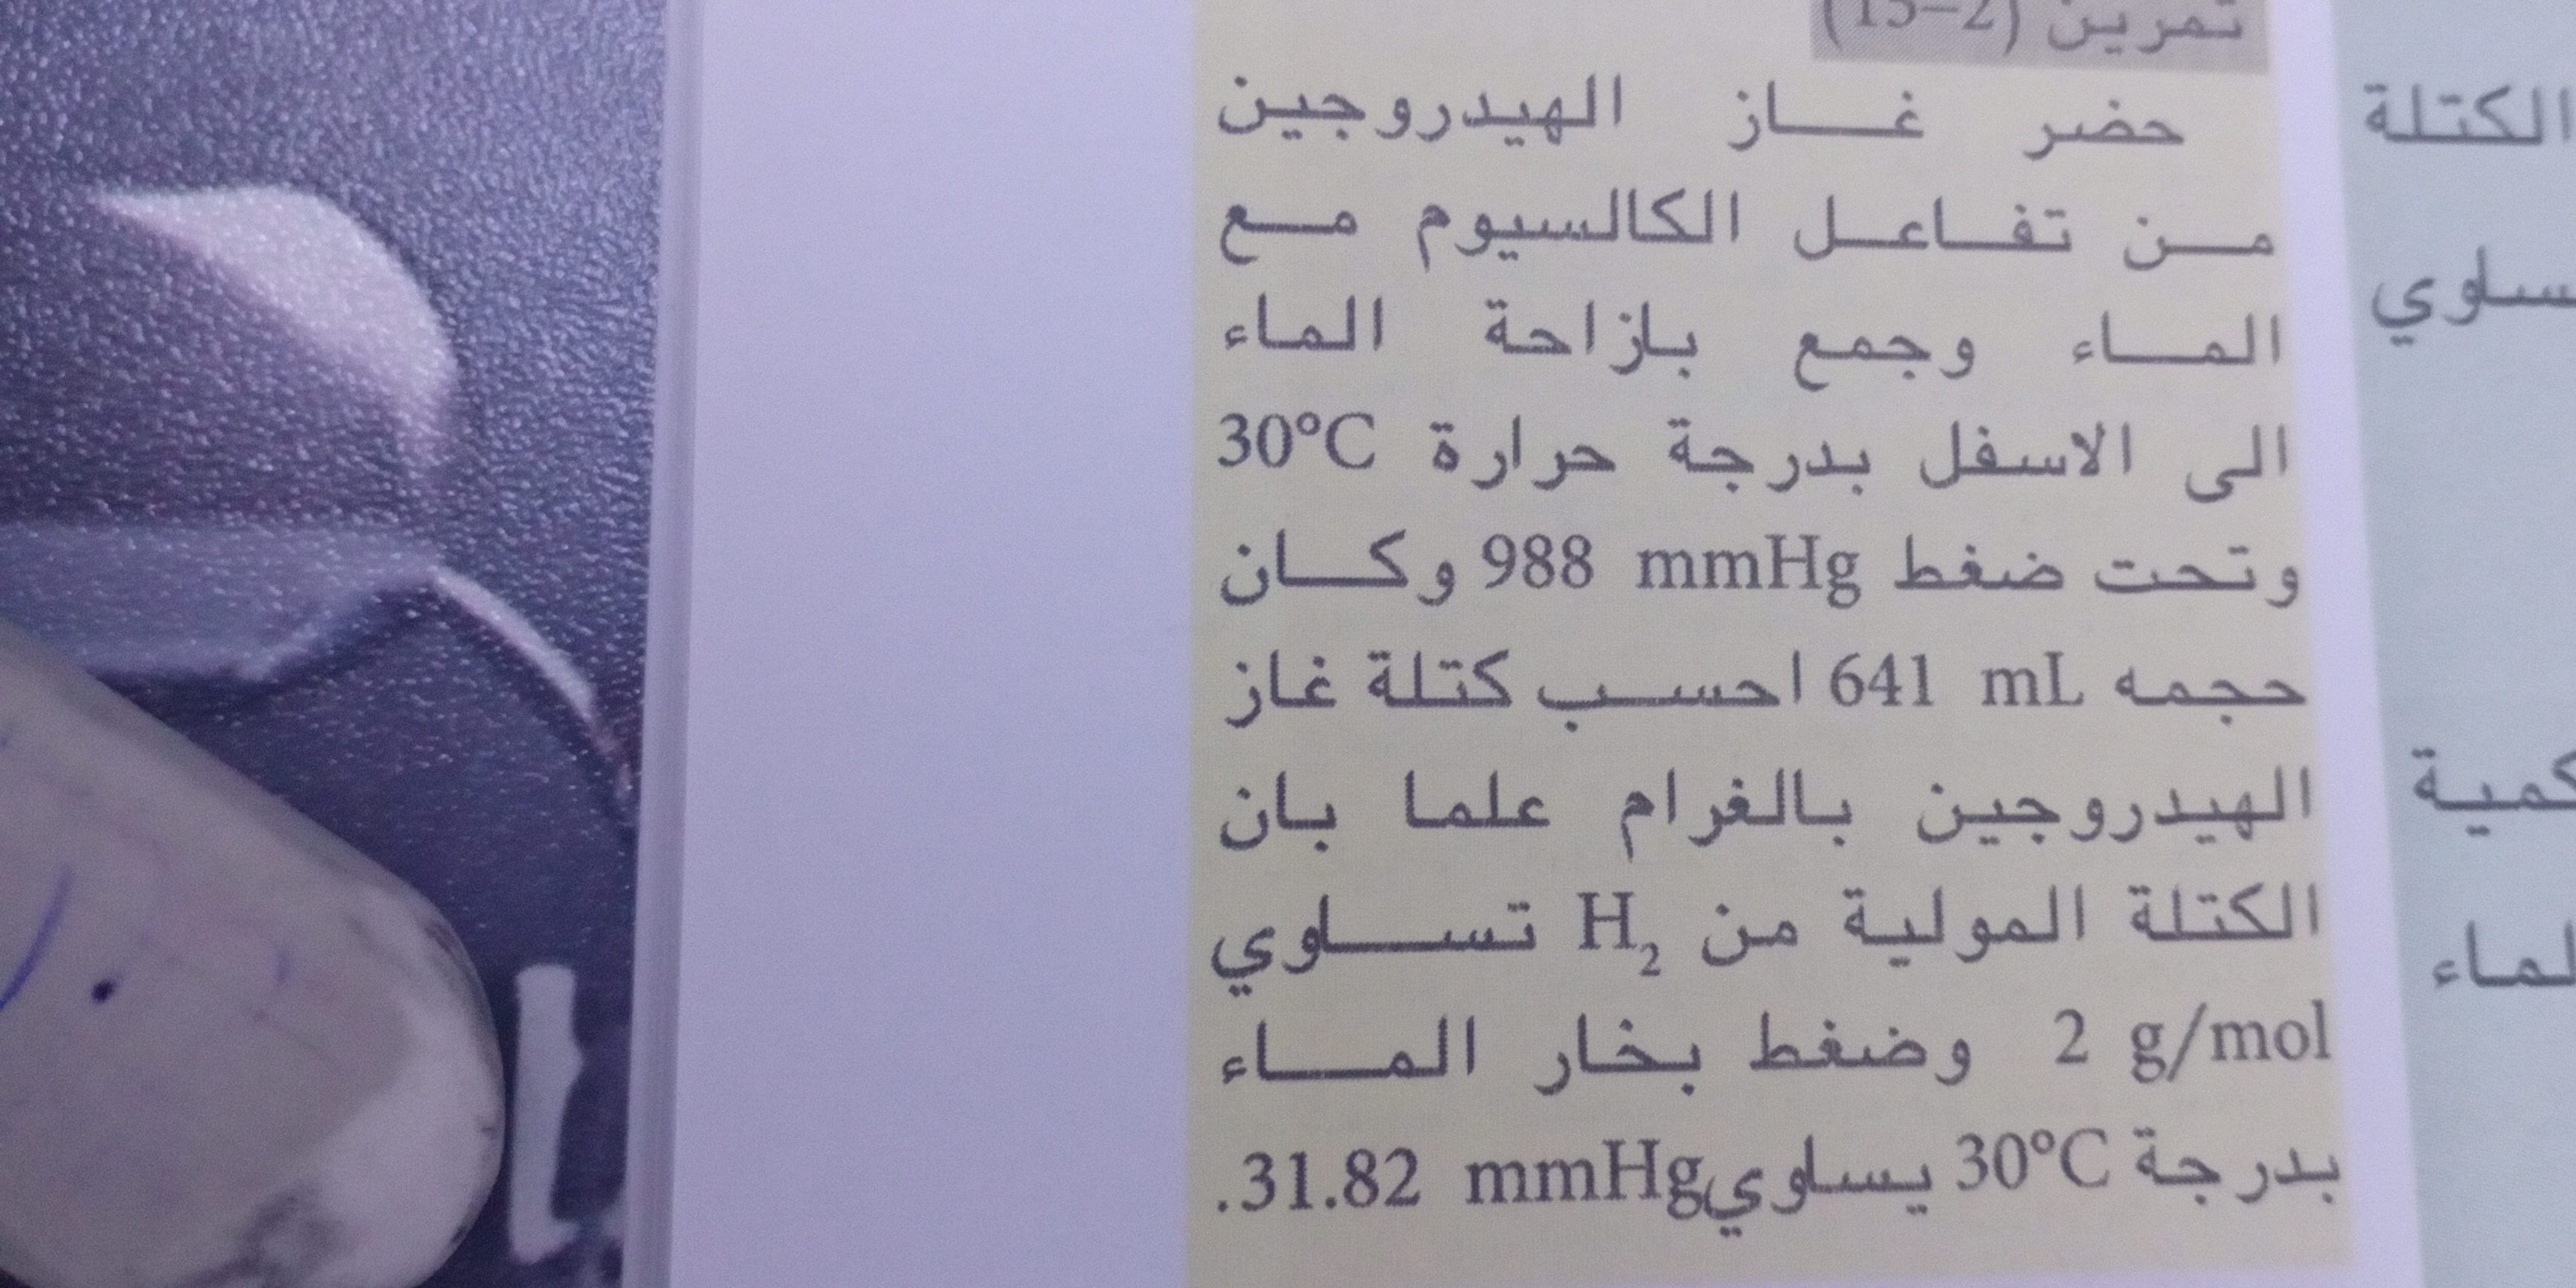 تمرين (2-15)
حضر غاز الهيدروجين
من تفاعل الكالسيوم مع
الماء وجمع بازاحة الماء
الى الاسفل بدرجة حرارة 30°C
وتحت ضغط 988 mmHg وكان
حجمه 641 mL احسب كتلة غاز
الهيدروجين بالغرام علما بان
الكتلة المولية من H₂ تساوي
2 g/mol وضغط بخار الماء
بدرجة 30°C يساوي 31.82 mmHg.
الكتلة